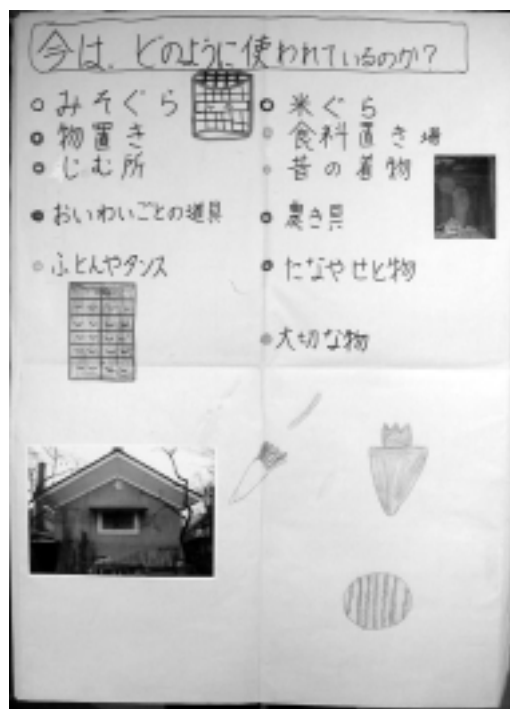 今は、どのように使われているのか?
みそぐら
物置き
じむ所
おいわいごとの道具
ふとんやタンス
米ぐら
食料置き場
昔の着物
農き具
たなやせと物
大切な物